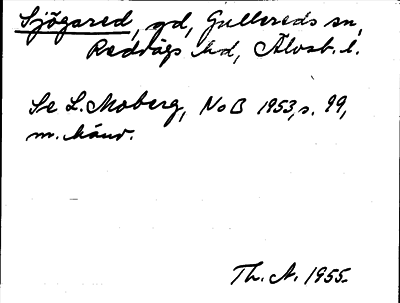 Sjögared, gd, Gullereds sn,
Redvägs hd, Älvsb. l.
Se L. Moberg, NoB 1953, s. 99,
m. hänv.
Th. A. 1955.